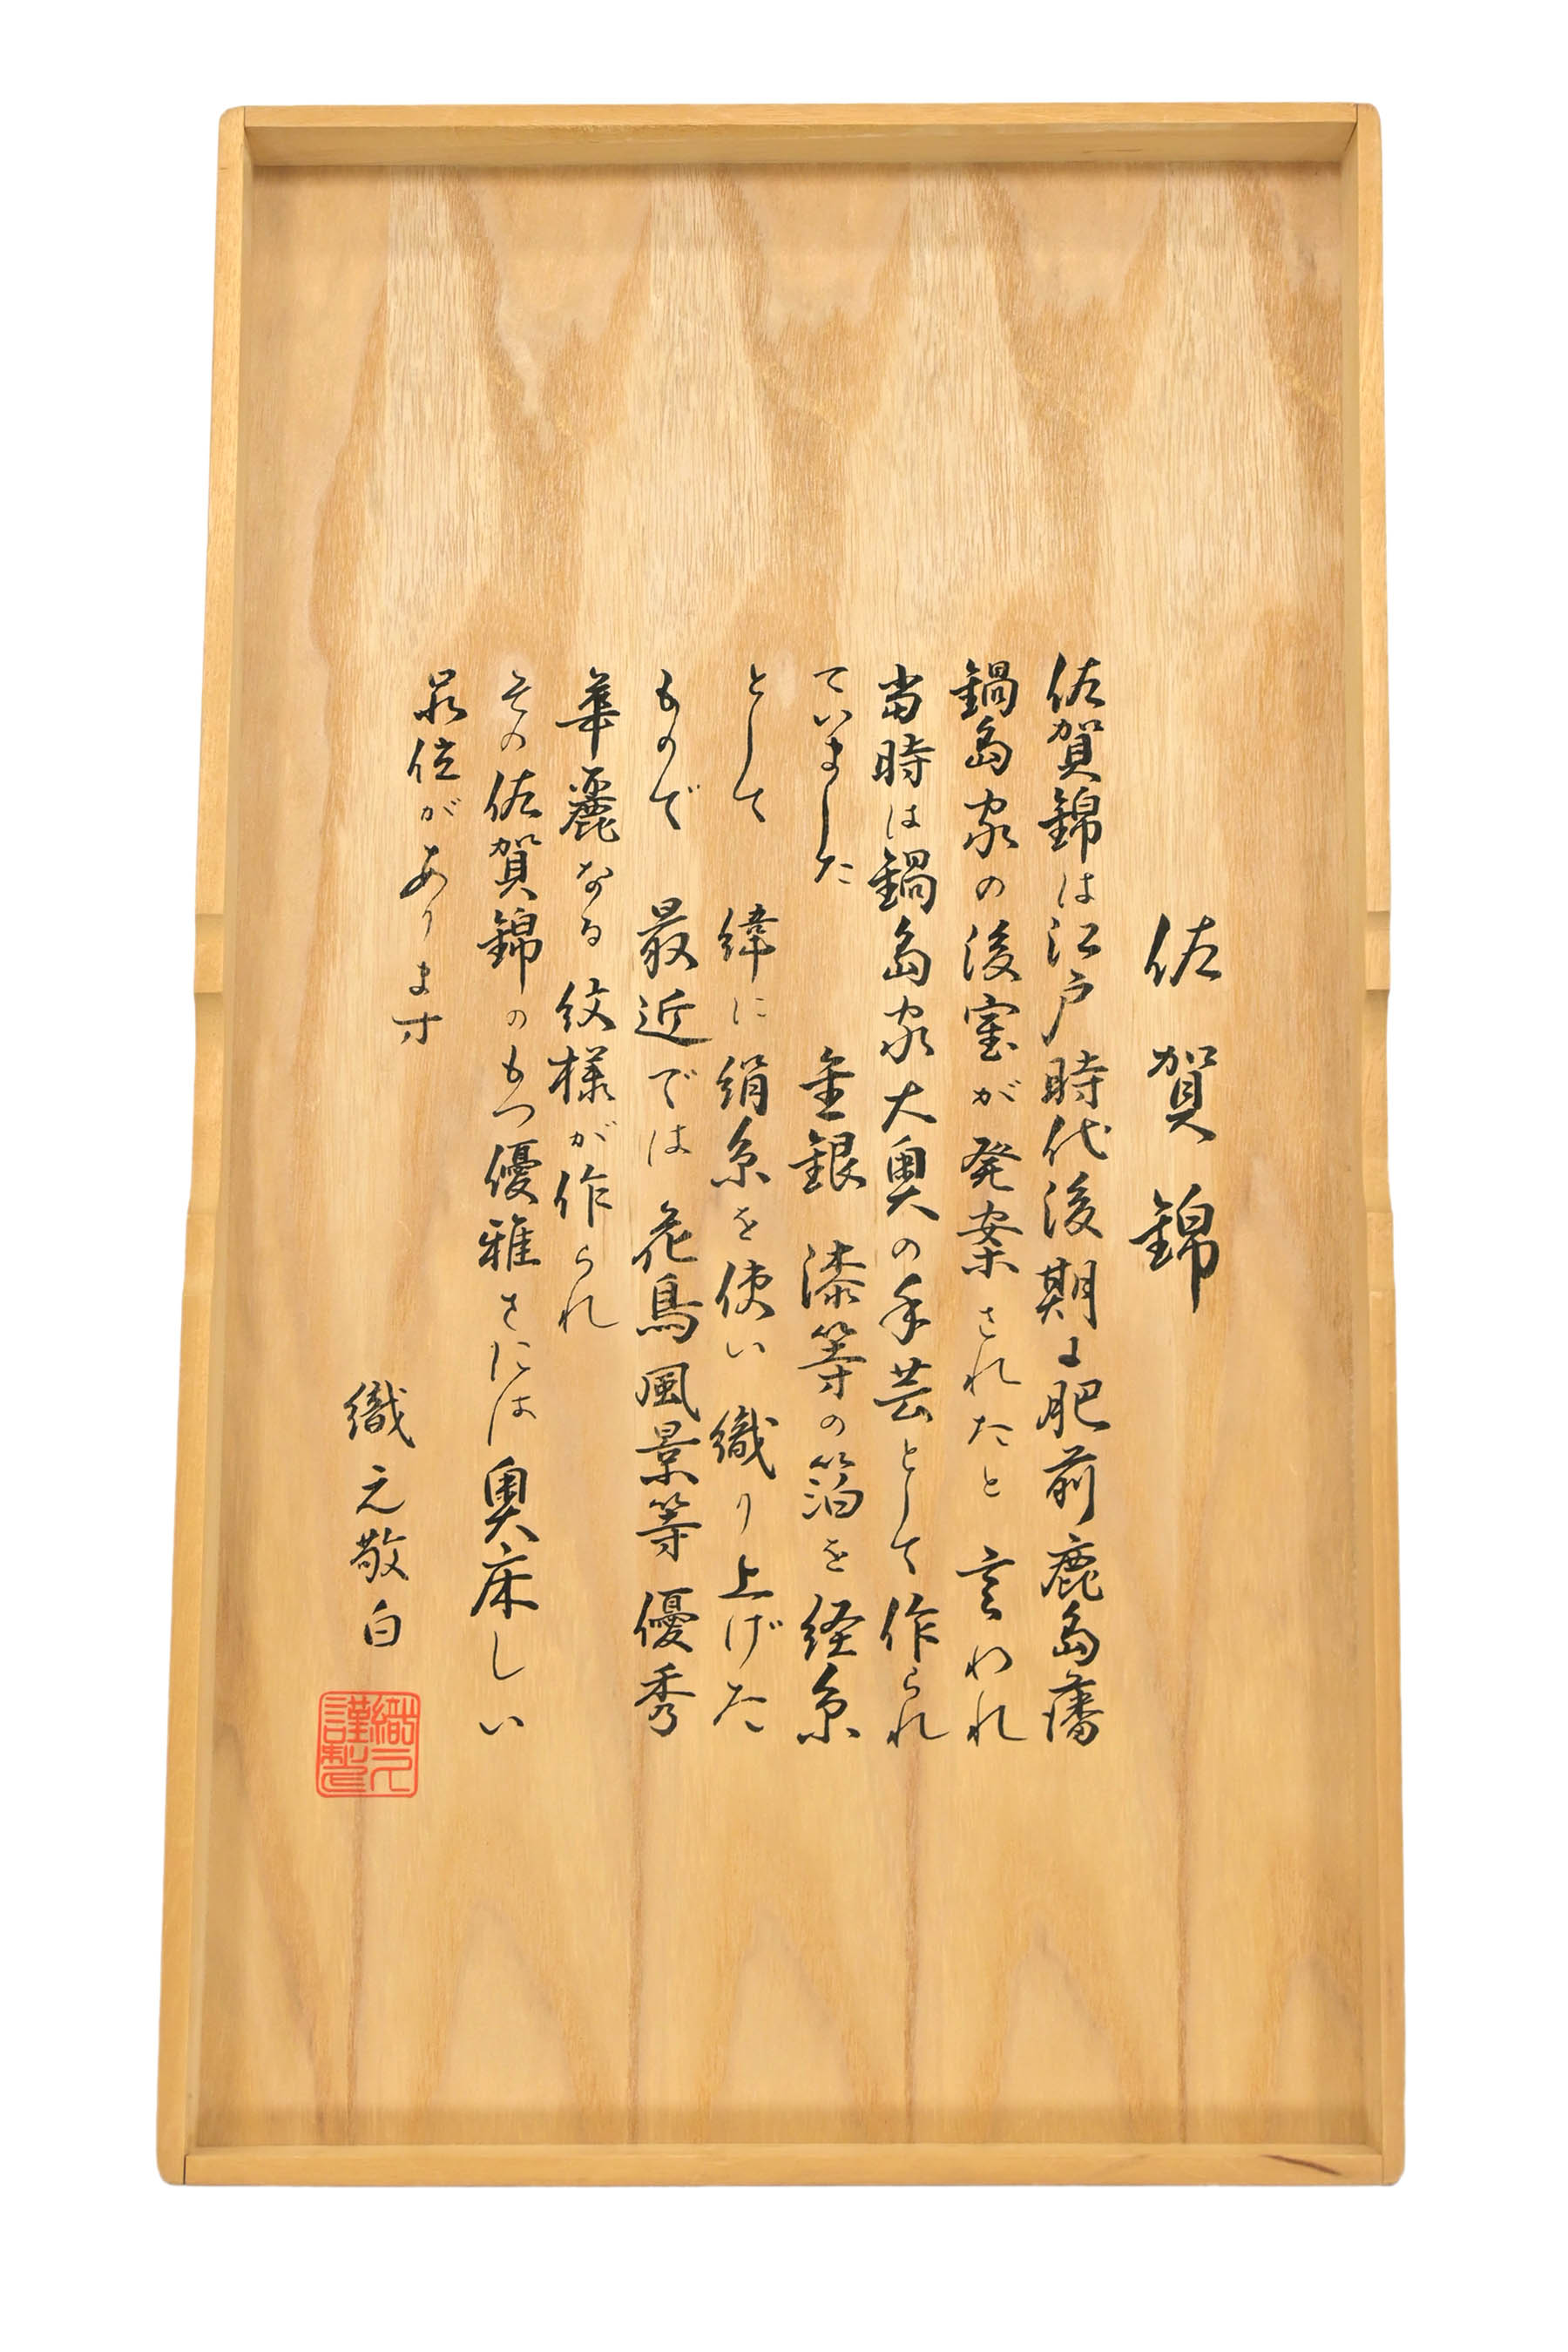 佐賀錦
佐賀錦は江戸時代後期に肥前鹿島藩
鍋島家の後室が発案されたと言われ
当時は鍋島家大奥の手芸として作られ
ていました　金銀　漆等の箔を経糸
として　緯に絹糸を使い　織り上げた
もので　最近では　花鳥風景等　優秀
華麗なる紋様が作られ
その佐賀錦のもつ優雅さには奥床しい
品位があります
織元敬白
織元
謹製